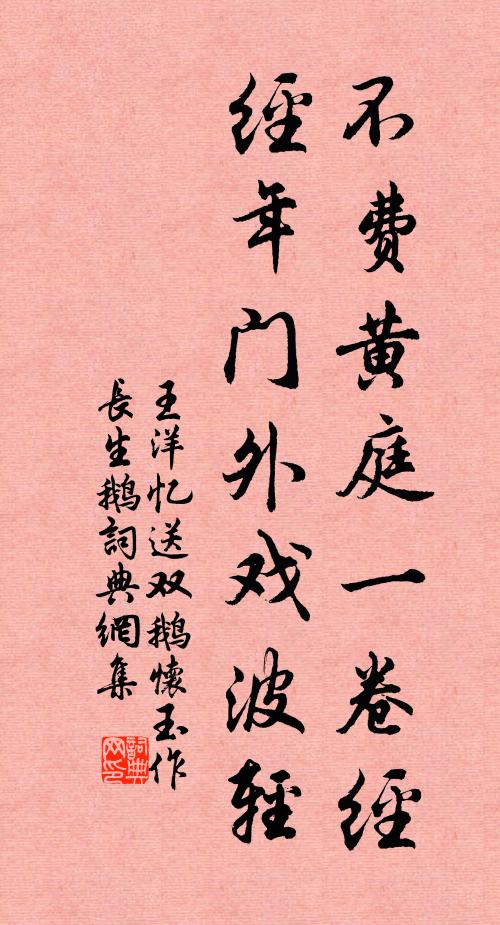 不费黄庭一卷经
经年门外戏波轻
王洋忆送双鹅怀玉作
长生鹅词典网集
詞典网印